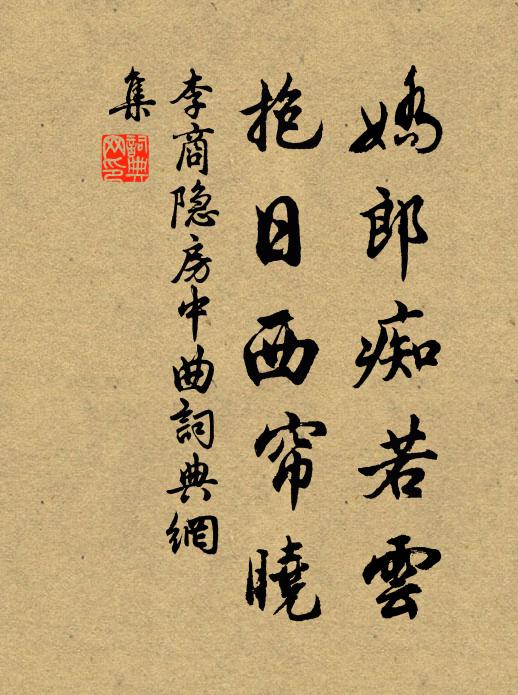 嬌郎痴若雲
抱日西帘曉
李商隐房中曲詞典網
集
詞典网印